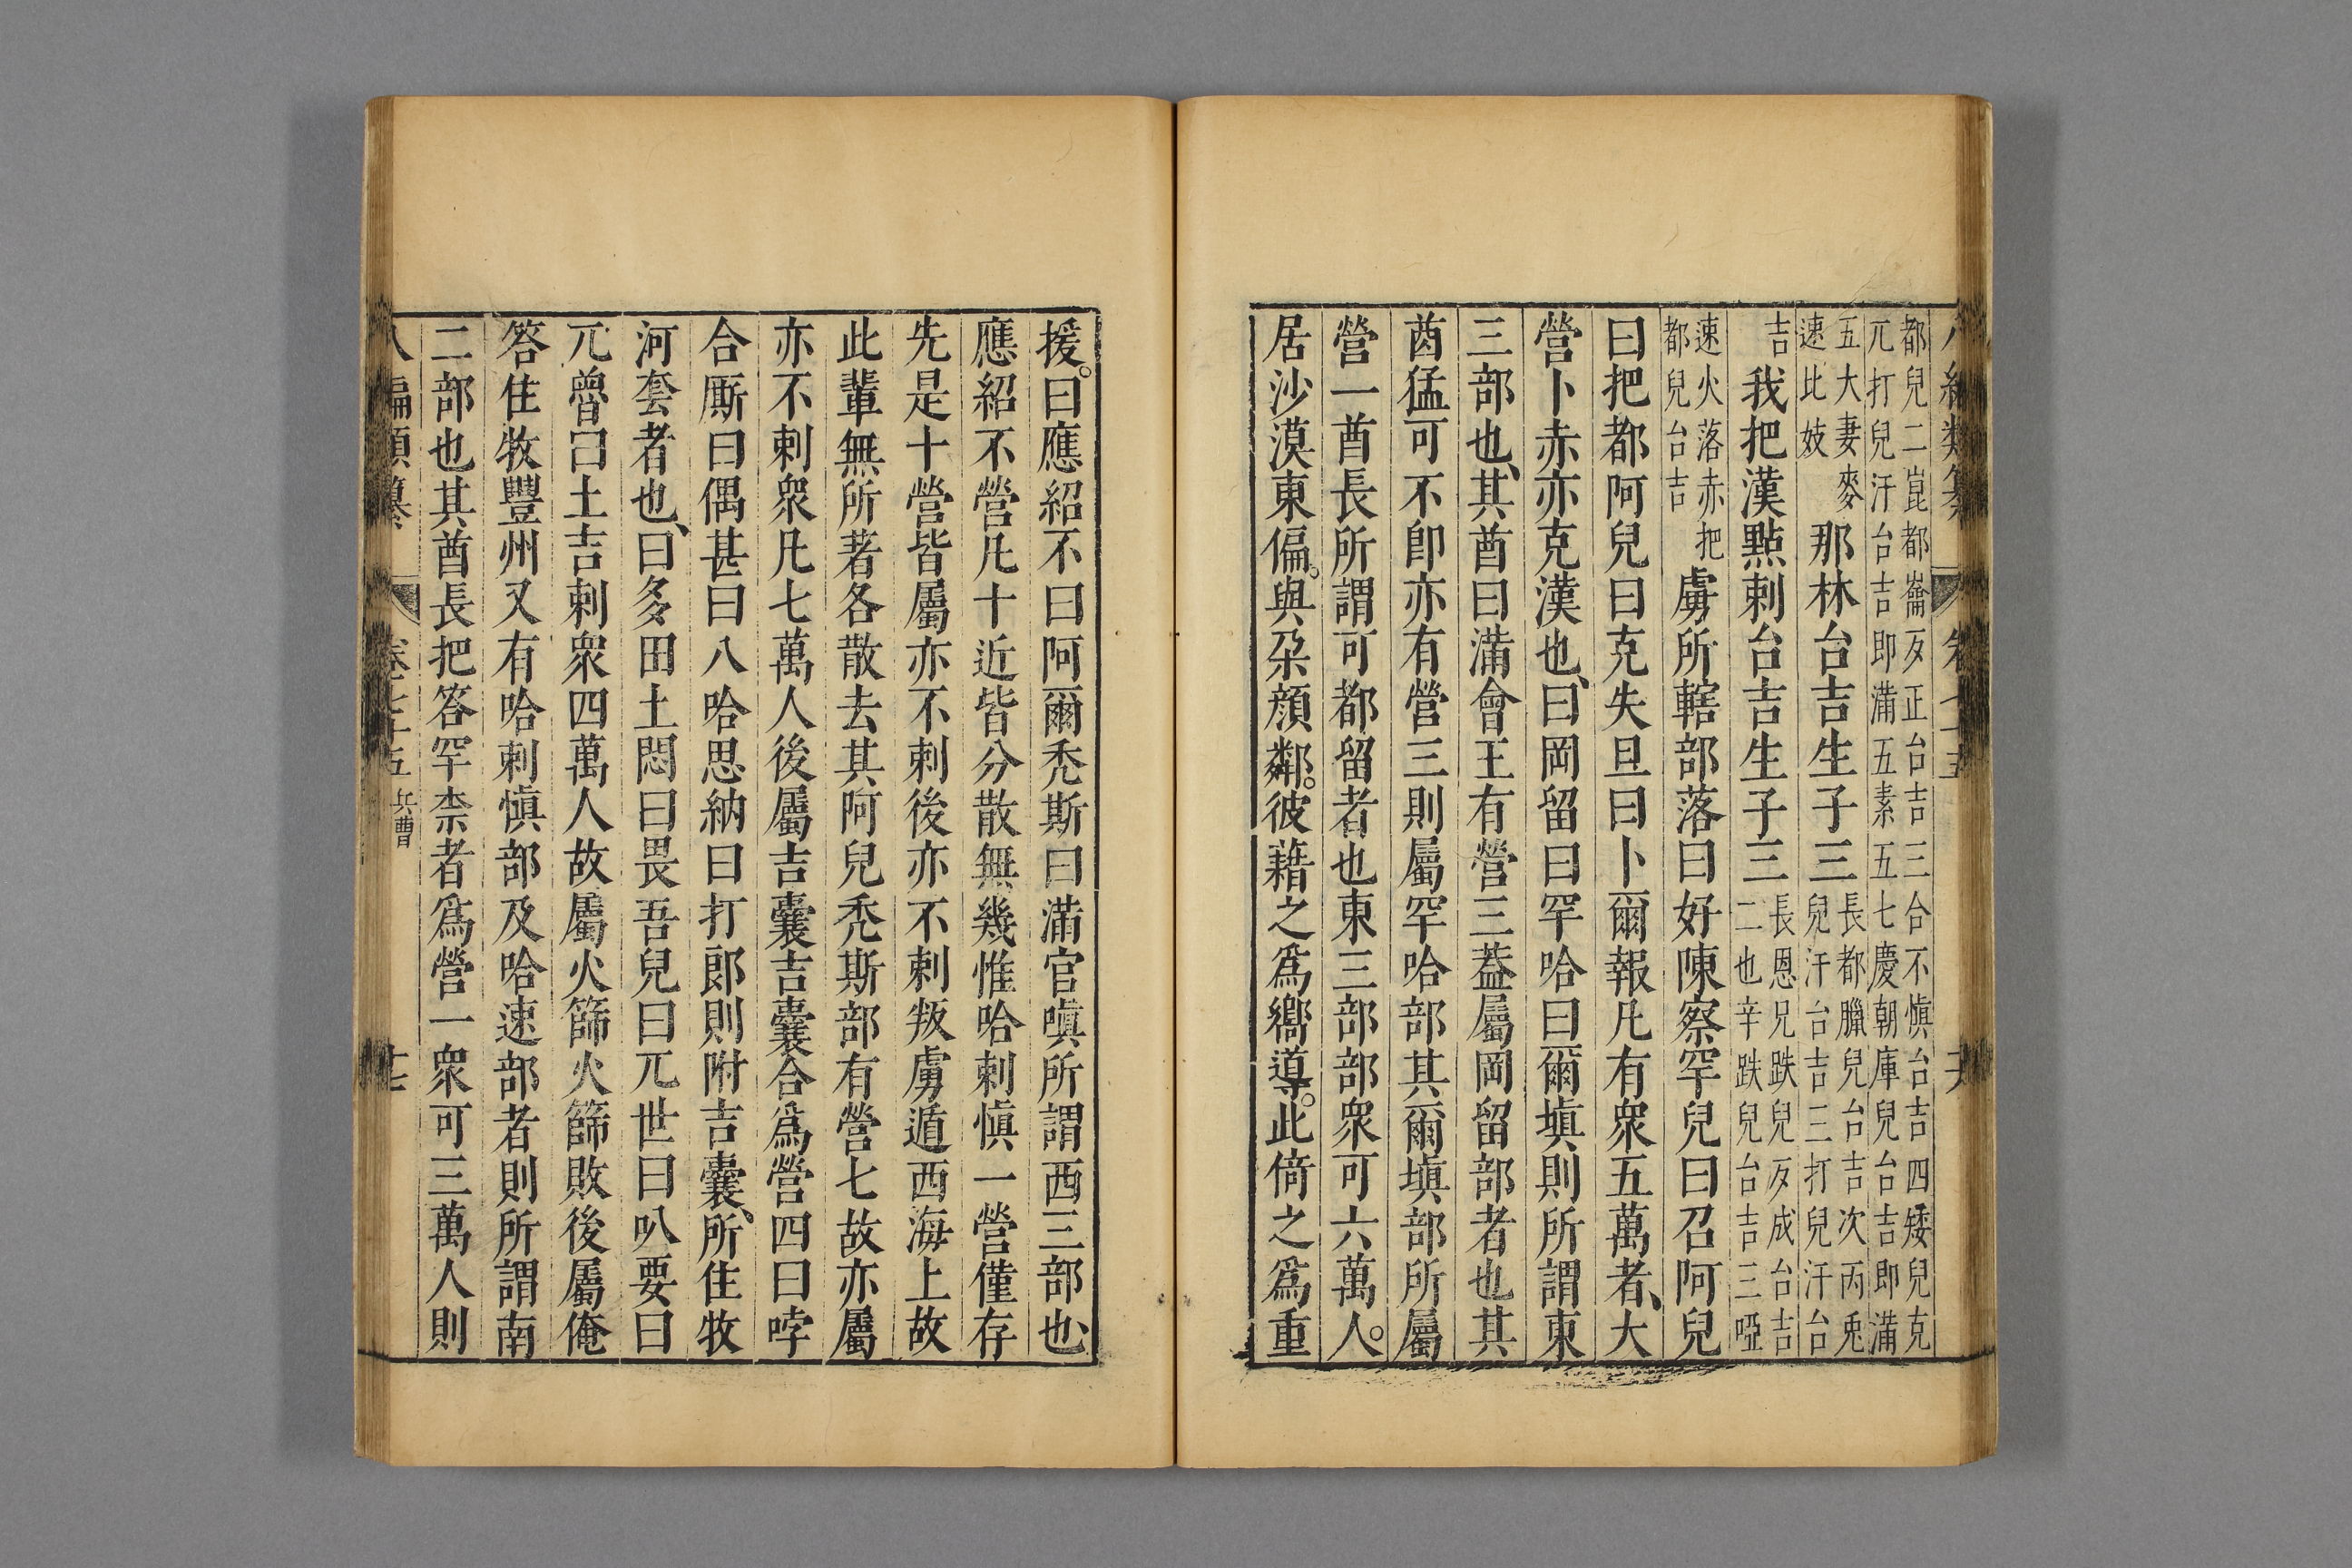 都兒二崑都崙歹正台吉三合不慎台吉四矮兒克
兀打兒汗台吉即滿五素五七慶朝庫兒台吉即滿
五大妻麥
速比妓
那林台吉生子三
長都臘兒台吉次丙兎
兒汗台吉三打兒汗台
吉
我把漢點剌台吉生子三
長恩兄跌兒歹成台吉
二也辛跌兒台吉三啞
速火落赤把
都兒台吉
虜所轄部落曰好陳察罕兒曰召阿兒
曰把都阿兒曰克失旦曰卜爾報凡有衆五萬者、大
營卜赤亦克漢也、曰岡留曰罕哈曰爾塡則所謂東
三部也、其酋曰滿會王有營三葢屬岡留部者也其
酋猛可不卽亦有營三則屬罕哈部其爾塡部所屬
營一酋長所謂可都留者也東三部部衆可六萬人。
居沙漠東偏。與朶顏鄰。彼藉之爲嚮導。此倚之爲重
援。曰應紹不曰阿爾禿斯曰滿官嗔所謂西三部也、
應紹不營凡十近皆分散無幾惟哈剌慎一營僅存
先是十營皆屬亦不剌後亦不剌叛虜遁西海上故
此輩無所著各散去其阿兒禿斯部有營七故亦屬
亦不剌衆凡七萬人後屬吉囊吉囊合爲營四曰哱
合厮曰偶甚曰八哈思納曰打郎則附吉囊、所住牧
河套者也、曰多田土悶曰畏吾兒曰兀世曰叭要曰
兀魯曰土吉剌衆四萬人故屬火篩火篩敗後屬俺
答住牧豐州又有哈剌慎部及哈速部者則所謂南
二部也其酋長把答罕柰者爲營一衆可三萬人則
八編類纂 卷七十五 兵曹 十七